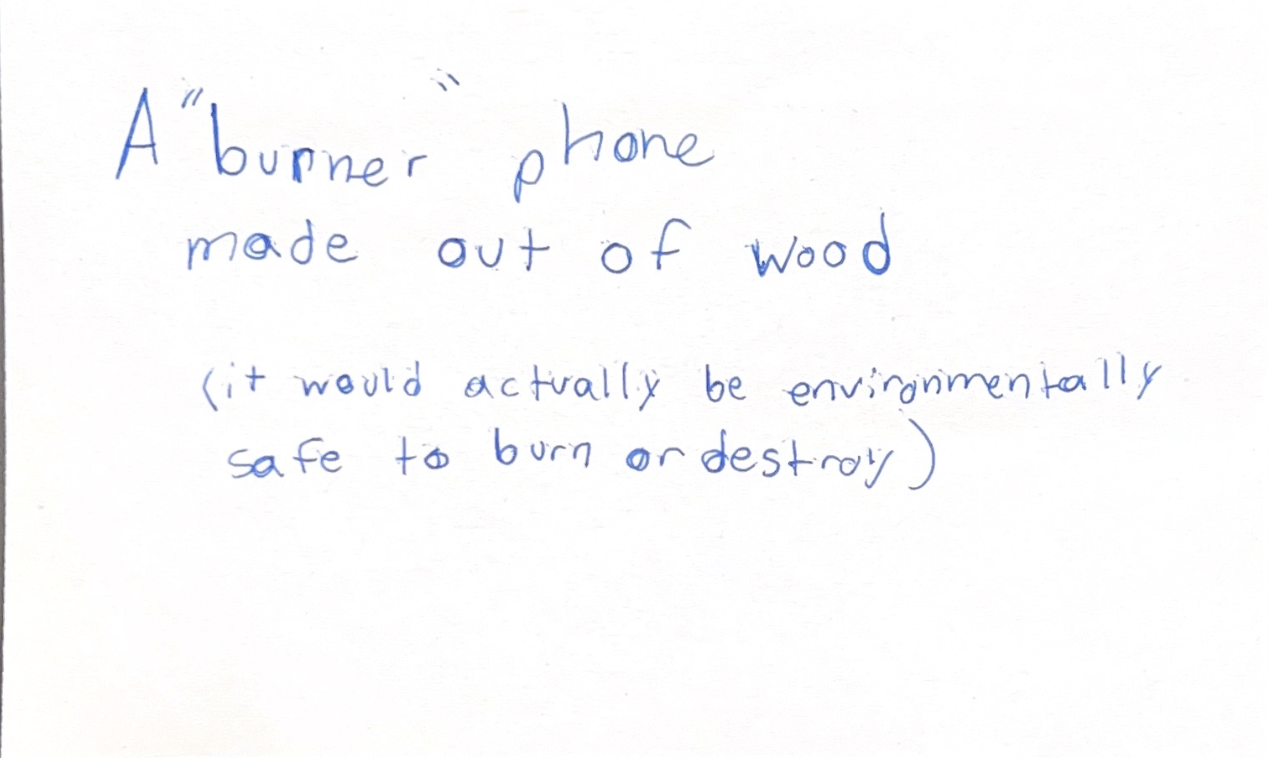 A "burner" phone
made out of wood
(it would actually be environmentally
safe to burn or destroy)